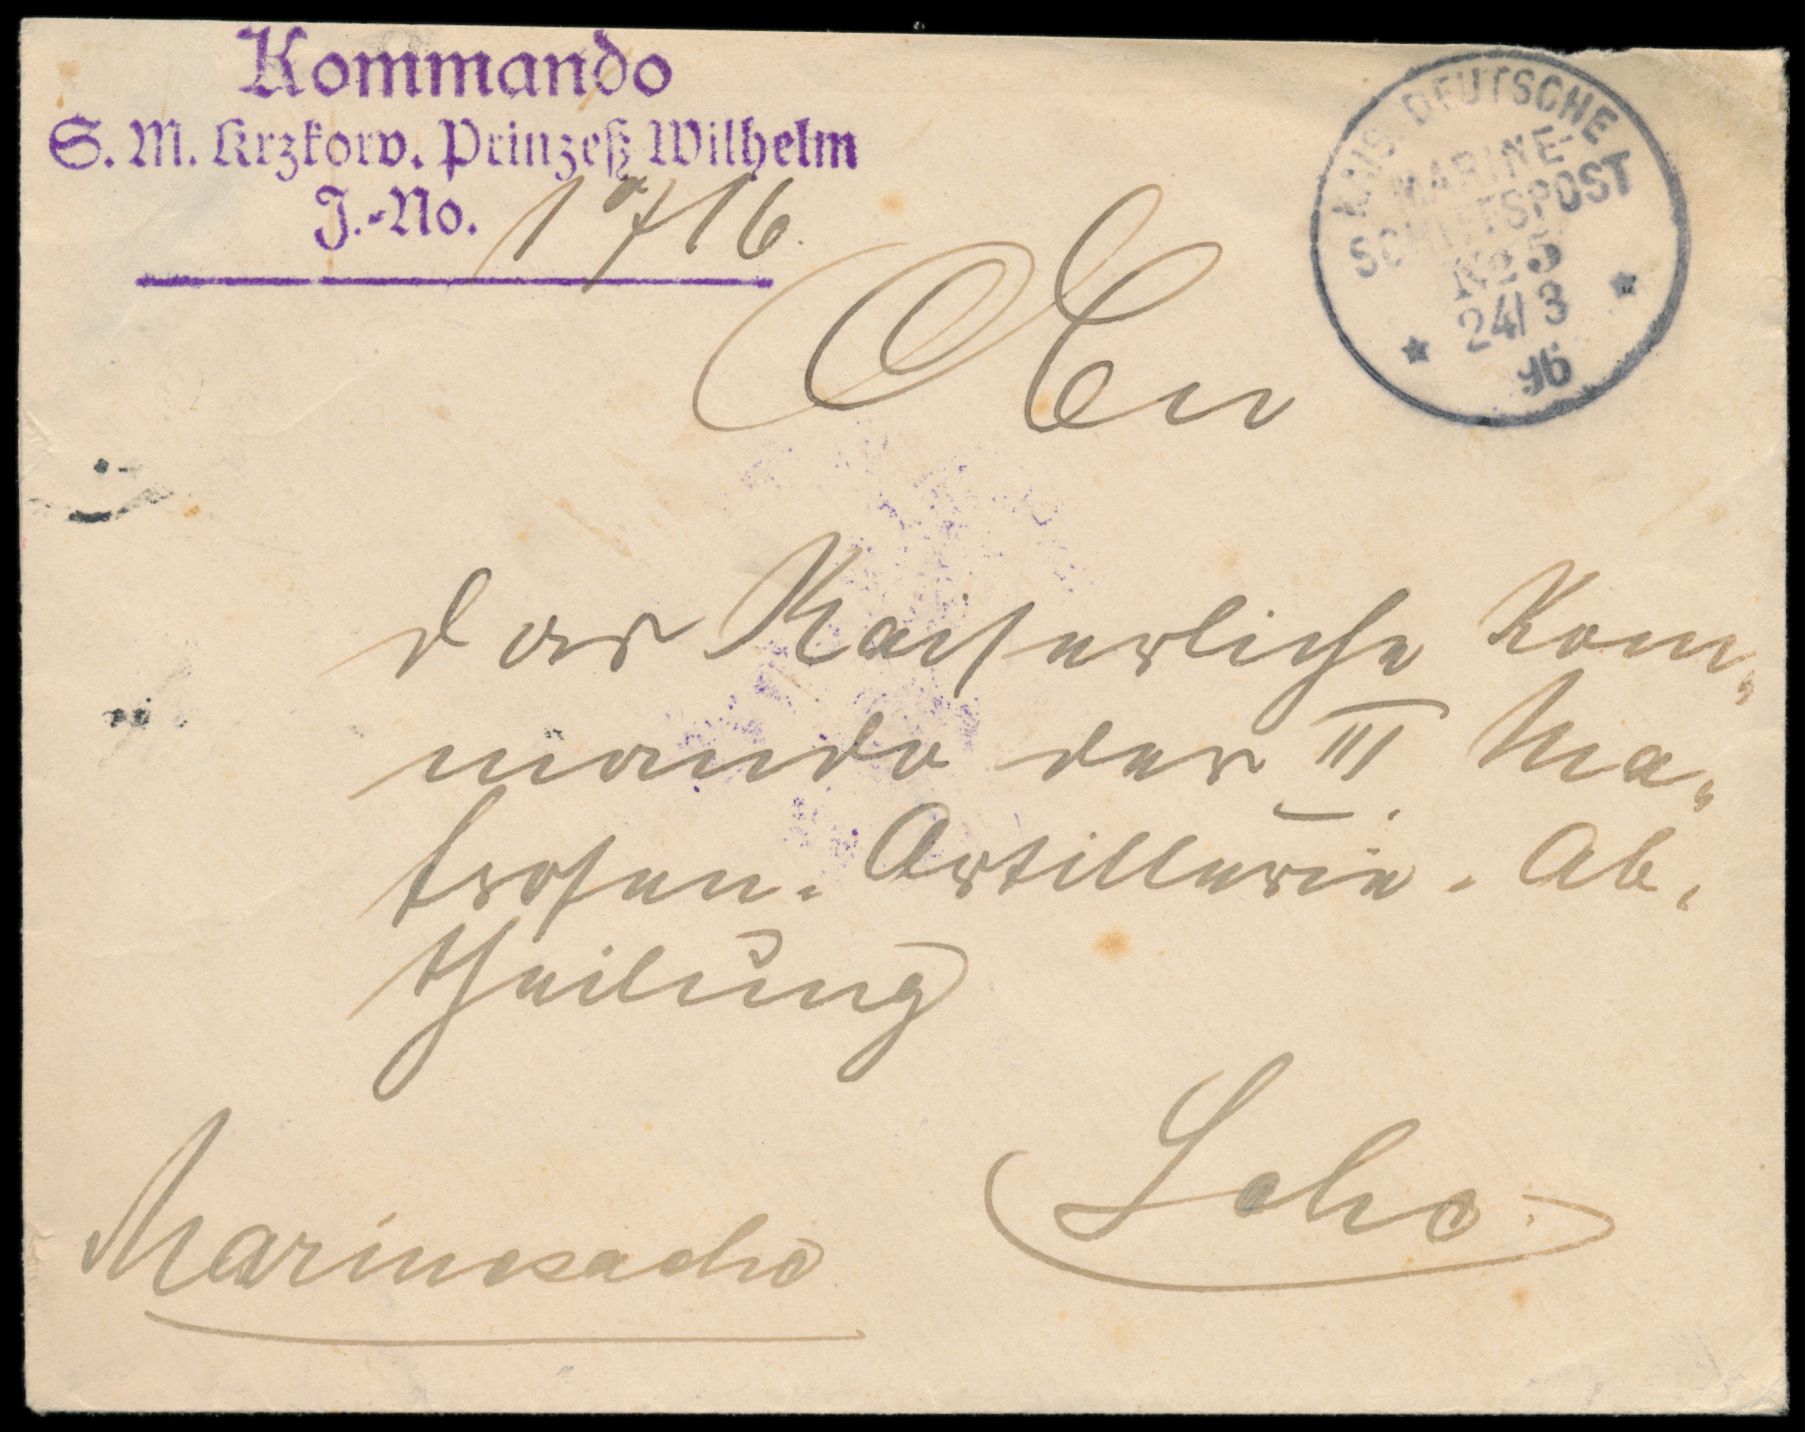 Kommando
S. M. Krzkorv. Prinzeß Wilhelm
J.-No. 1716.
KAIS. DEUTSCHE
MARINE-
SCHIFFSPOST
No 5
24/3
96
An
das Kaiserliche Kom-
mando der III. Ma-
trosen-Artillerie-Ab-
theilung
Lehe.
Marinesache